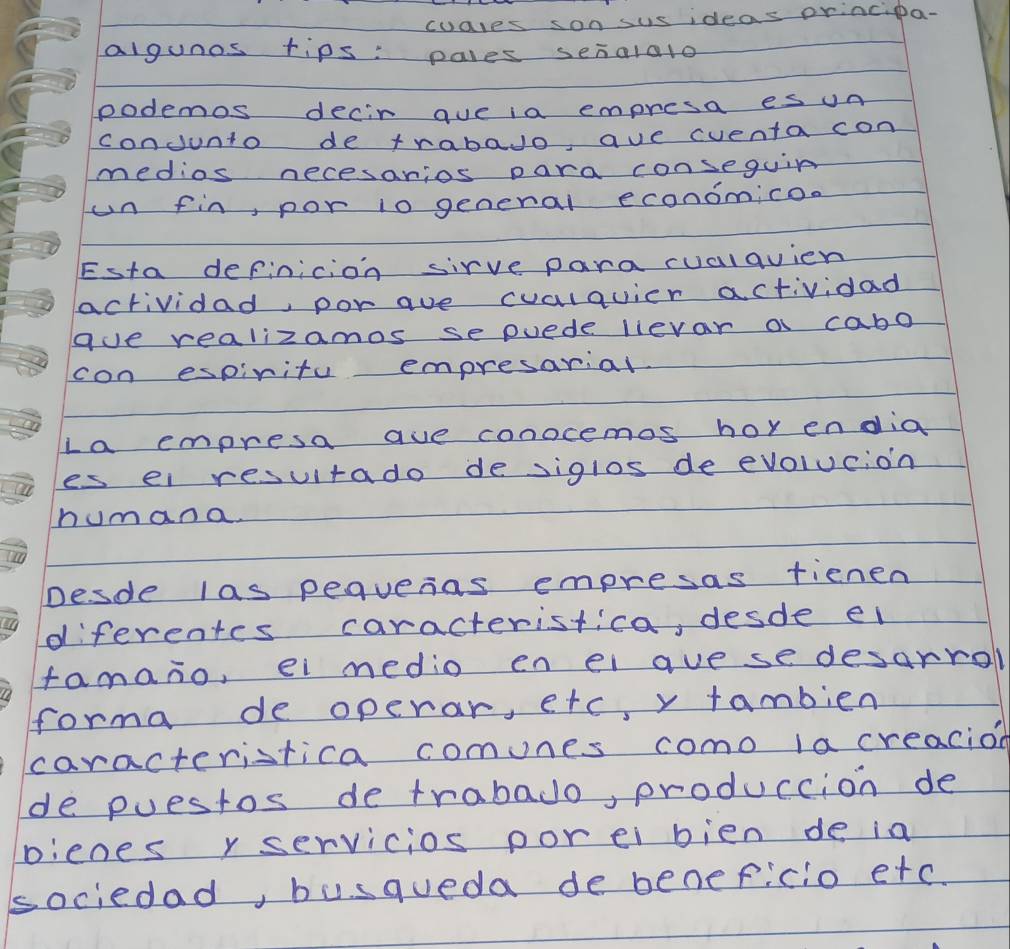 cuales son sus ideas principa-
algunos tips: pales señalalo
podemos decir que la empresa es un
conjunto de trabajo, que cuenta con
medios necesarios para conseguir
un fin, por lo general económico.
Esta definición sirve para cualquier
actividad, por que cualquier actividad
que realizamos se puede llevar a cabo
con espiritu empresarial.
La empresa que conocemos hoy en dia
es el resultado de siglos de evolución
humana.
Desde las pequeñas empresas tienen
diferentes caracteristica, desde el
tamaño, el medio en el que se desarrol
forma de operar, etc, y tambien
caracteristica comunes como la creación
de puestos de trabajo, producción de
bienes y servicios por el bien de la
sociedad, busqueda de beneficio etc.